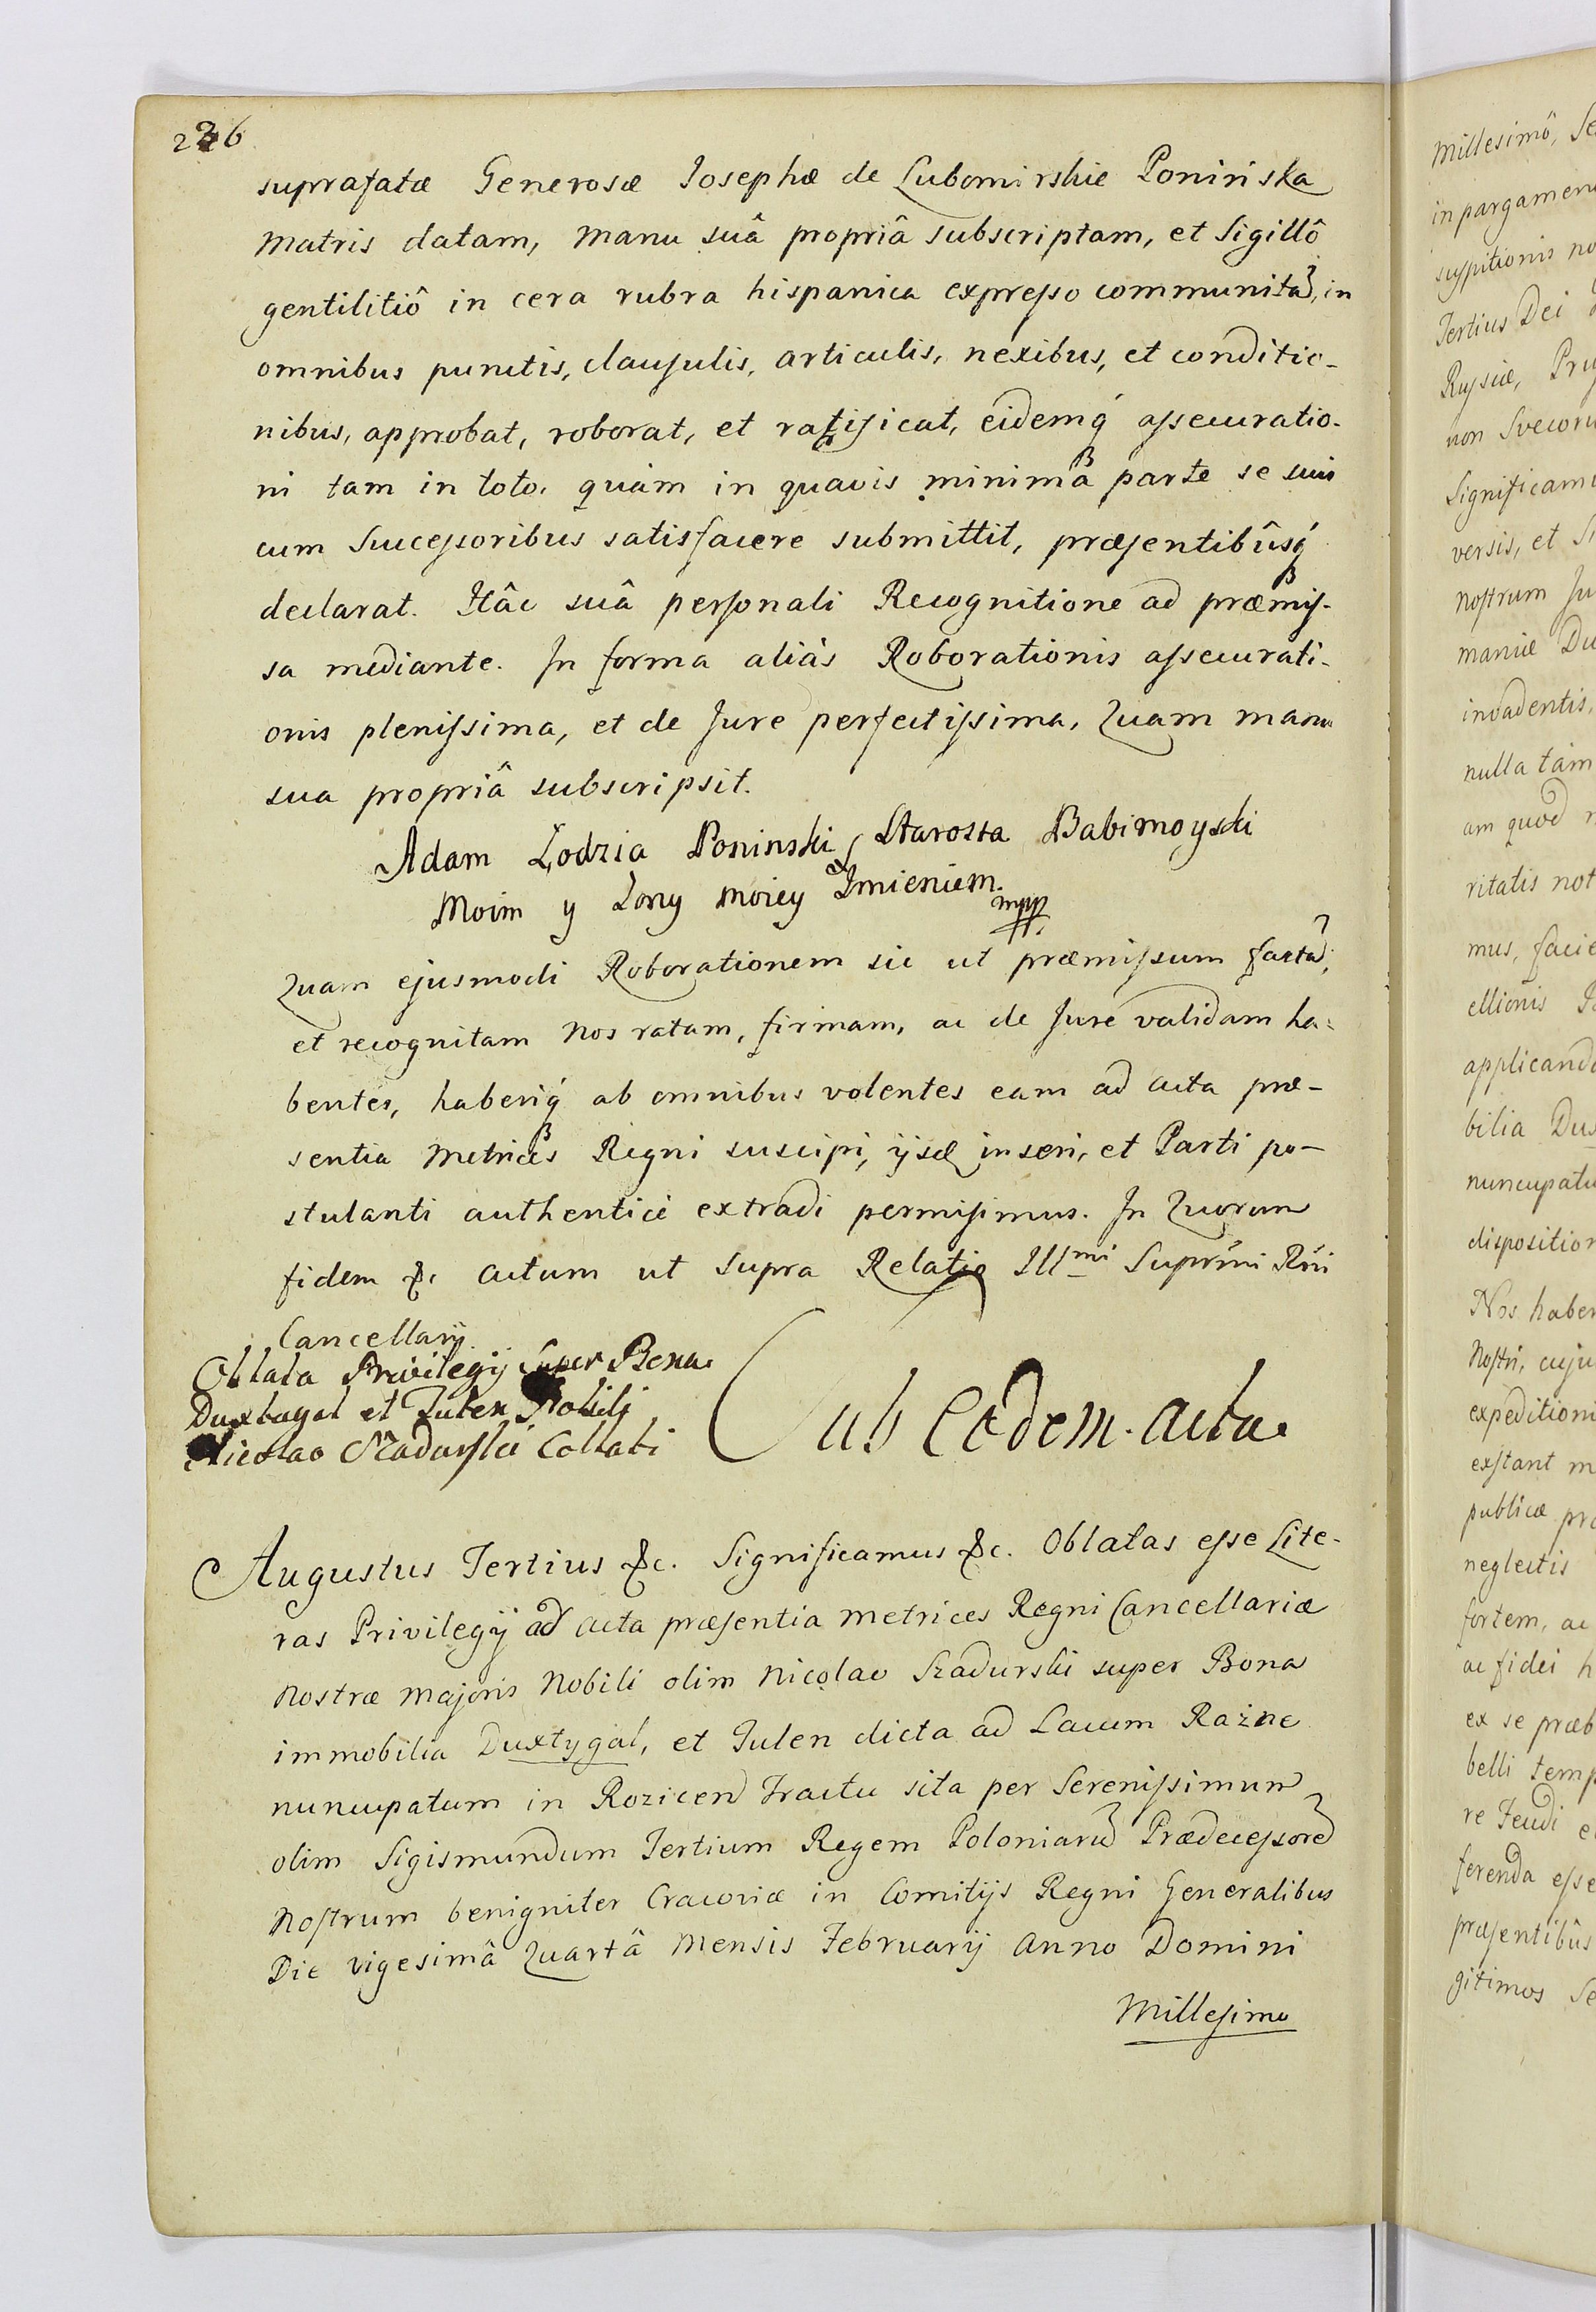 236
suprafatæ Generosæ Josephæ de Lubomirskie Ponińska
Matris datam, manu suâ propriâ subscriptam, et Sigillô
gentilitiô in cera rubra hispanica expresso communitã, in
omnibus punctis, clausulis, articulis, nexibus, et conditio-
nibus, approbat, roborat, et ratificat, eidemq́ assecuratio-
ni tam in toto, quàm in quavis minimâ parte se suis
cum Successoribus satisfacere submittit, præsentibûsq́
declarat. Hâc suâ personali Recognitione ad præmis-
sa mediante. In forma aliàs Roborationis assecurati-
onis plenissima, et de Jure perfectissima, Quam manu
sua propriâ subscripsit.
Adam Łodzia Poninski Starosta Babimoyski
Moim y Żony moiey Imieniem. mpp.
Quam ejusmodi Roborationem sic ut præmissum factã,
et recognitam Nos ratam, firmam, ac de Jure validam ha-
bentes, haberiq́ ab omnibus volentes eam ad acta præ-
sentia Metrices Regni suscipi, ijsq inseri, et Parti po-
stulanti authenticè extradi permisimus. In Quorum
fidem &c Actum ut supra Relatio Illmi Suprmi Rni
Cancellarij
Oblata Privilegij Super Bona
Duxtygal et Julen Nobili
Nicolao Szadurski Collati
Sub Eodem. Actu
Augustus Tertius &c. Significamus &c. Oblatas esse Lite-
ras Privilegij ad Acta præsentia Metrices Regni Cancellariæ
Nostræ Majoris Nobili olim Nicolao Szadurski super Bona
immobilia Duxtygal, et Julen dicta ad Lacum Rażne
nuncupatum in Rozicen Tractu sita per Serenissimum
olim Sigismundum Tertium Regem Poloniarũ Prædecessorẽ
Nostrum benigniter Cracoviæ in Comitijs Regni Generalibus
Die vigesimâ Quartâ Mensis Februarij Anno Domini
Millesimo
Millesimô,
in
Tertius Dei
Russiæ,
non Svecoru
Significamu
versis, et
Nostrum Ju
maniæ Du
invadentis,
nulla tàm
am quod
ritatis not
mus, facie
ellionis
applicand
bilia Du
nuncupatu
disposition
Nos haben
Nostri, cuju
expeditioni
exstant m
publicæ pro
neglectis
fortem, ac
ac fidei h
ex se præb
belli temp
re Feudi e
ferenda esse
præsentibûs
gitimos Se